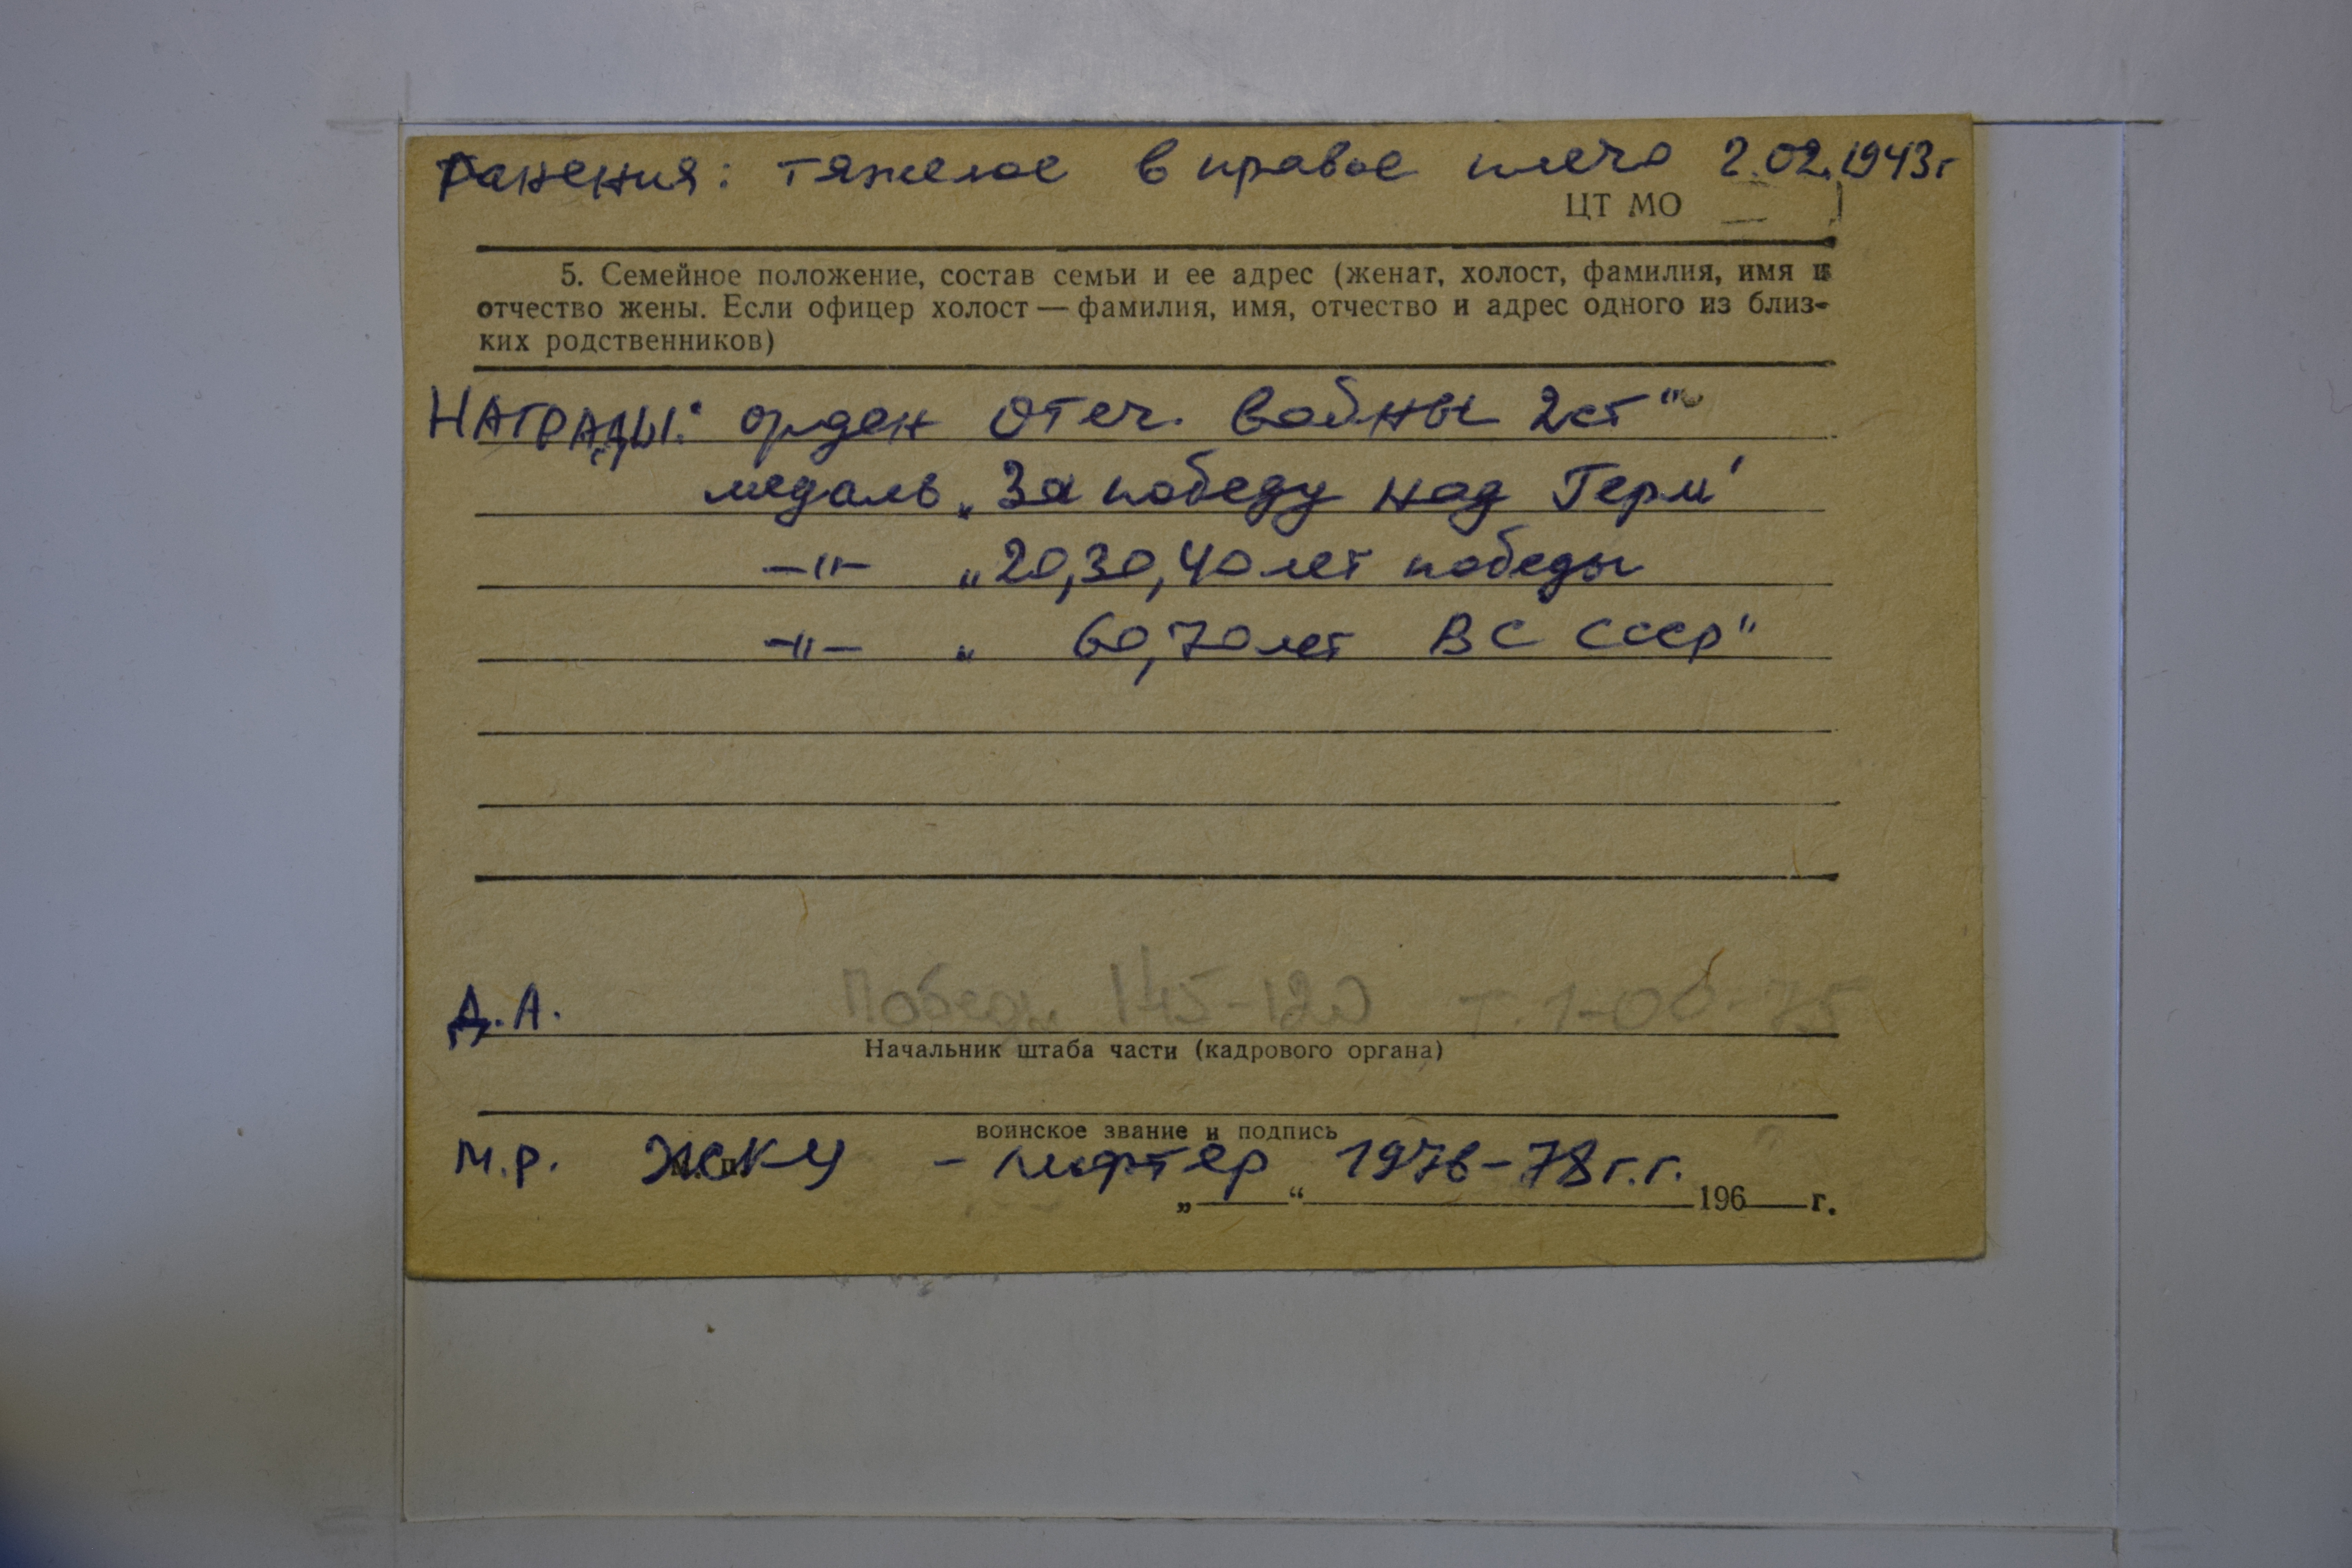 Ранения: тяжелое в правое плечо 2.02.1943г
ЦТ МО
5. Семейное положение, состав семьи и ее адрес (женат, холост, фамилия, имя и
отчество жены. Если офицер холост — фамилия, имя, отчество и адрес одного из близ-
ких родственников)
НАГРАДЫ: орден Отеч. Войны 2ст"
медаль „За победу над Герм"
—"— „20,30,40 лет победы
—"— „ 60,70 лет ВС СССР"
Д.А. Победы 145-120 т. 1-00-75
Начальник штаба части (кадрового органа)
воинское звание и подпись
М.Р. ЖСКУ - лифтер 1976-78г.г.
„ “ 196 г.